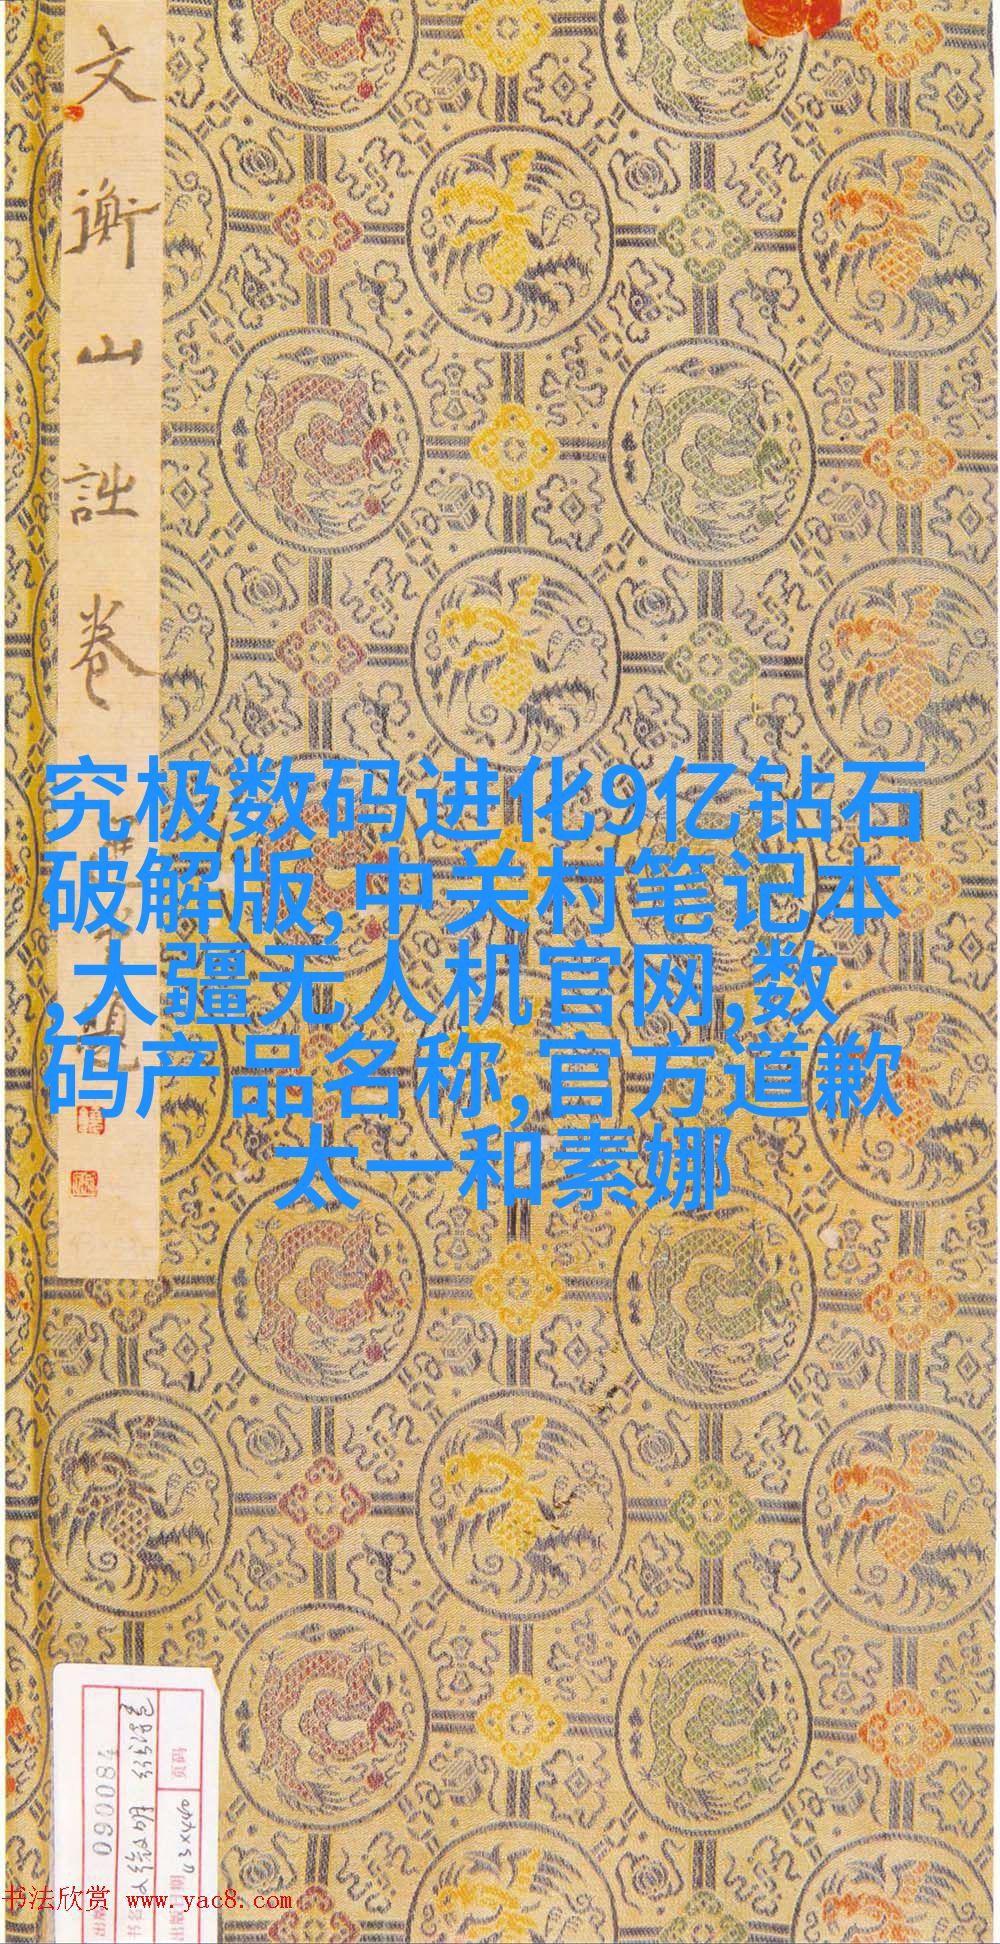 文衡山詩卷
究极数码进化9亿钻石
破解版,中关村笔记本
,大疆无人机官网,数
码产品名称,官方道歉
太一和素娜
090084
页码
43x440
书法欣赏 www.yac8.com